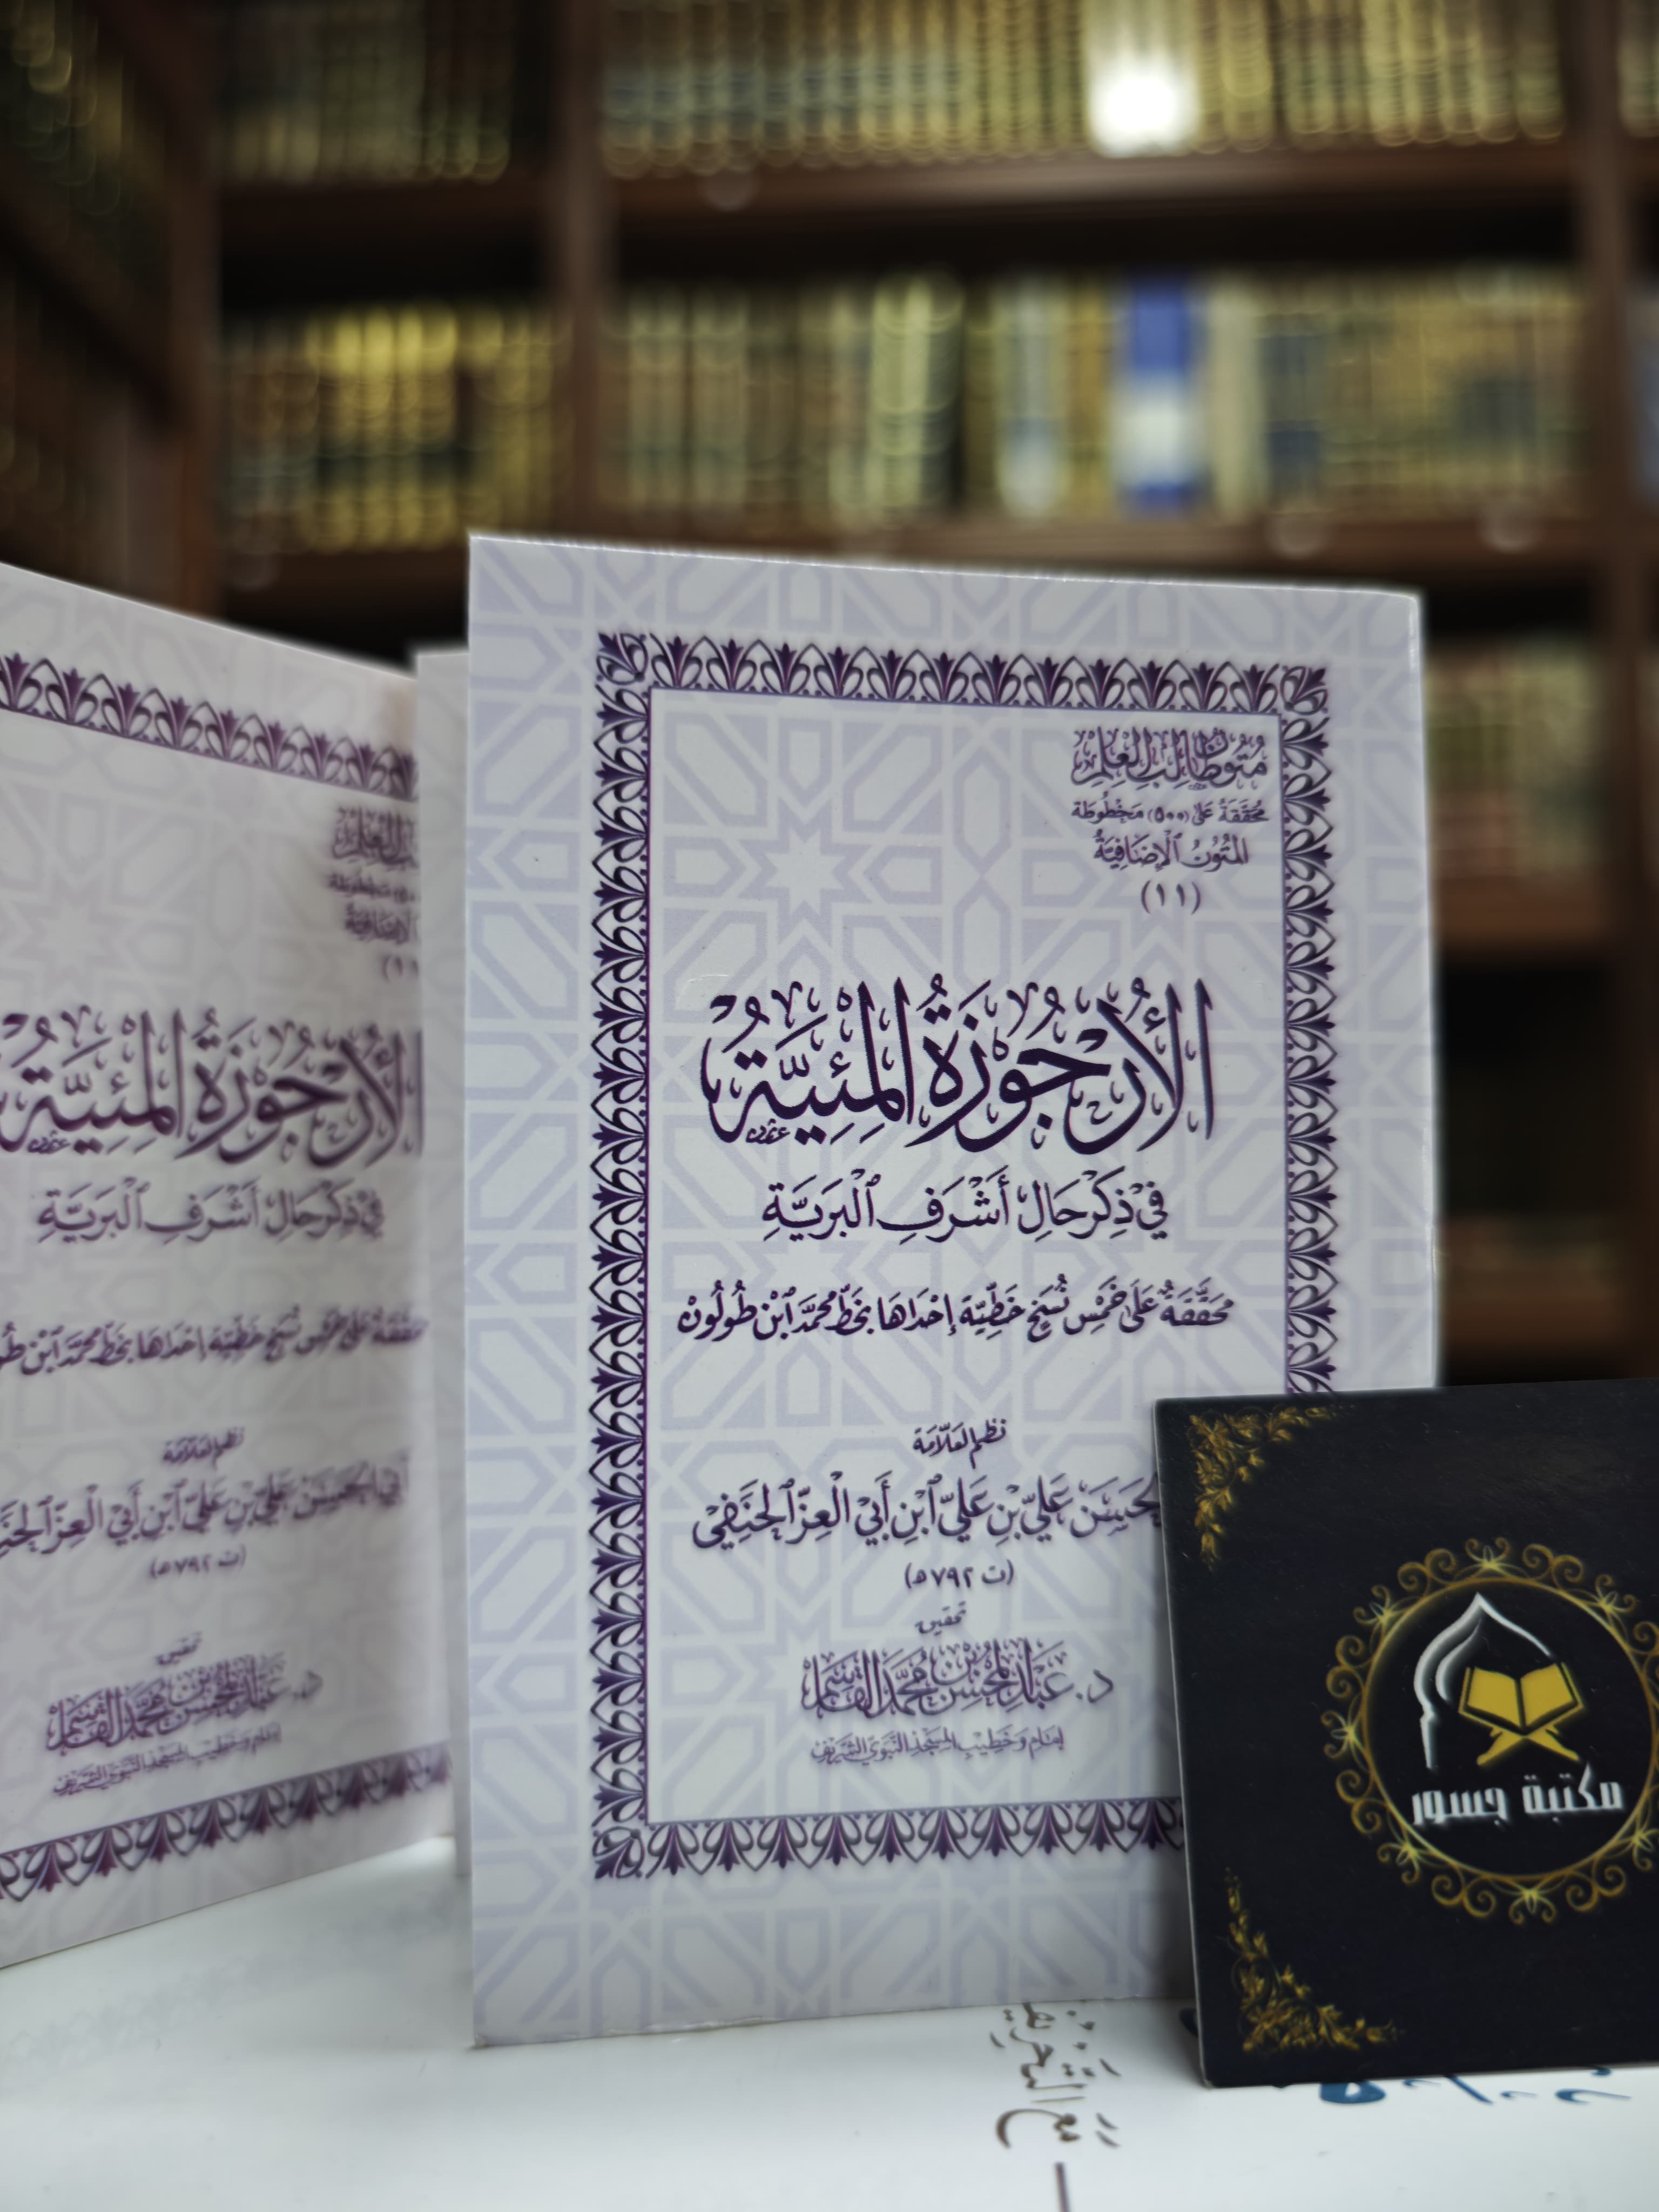 مُتُونُ طَالِبِ الْعِلْمِ
مُحَقَّقَةٌ عَلَى (٥٠٠) مَخْطُوطَة
المُتُونُ ٱلْإِضَافِيَّةُ
(١١)
الأُرْجُوزَةُ المِئِيَّةُ
فِي ذِكْرِ حَالِ أَشْرَفِ ٱلْبَرِيَّةِ
مُحَقَّقَةٌ عَلَى خَمْسِ نُسَخٍ خَطِّيَّةٍ إِحْدَاهَا بِخَطِّ مُحَمَّدِ ٱبْنِ طُولُونْ
نظم العَلَّامَة
الحَسَن عَلِيِّ بْنِ عَلِيِّ ٱبْنِ أَبِي الْعِزِّ ٱلْحَنَفِي
(ت ٧٩٢ ه)
تحقيق
د. عَبْدُ الْمُحْسِنِ بْنُ مُحَمَّدٍ الْقَاسِم
إمَام وَخَطِيب المَسْجِدِ النَّبَوِيِّ الشَّرِيفِ
مكتبة جسور
الأُرْجُوزَةُ المِئِيَّةُ
فِي ذِكْرِ حَالِ أَشْرَفِ ٱلْبَرِيَّةِ
عَلَى خَمْسِ نُسَخٍ خَطِّيَّةٍ إِحْدَاهَا بِخَطِّ مُحَمَّدِ ٱبْنِ
نظم العَلَّامَة
أَبِي الْحَسَن عَلِيِّ بْنِ عَلِيِّ ٱبْنِ أَبِي الْعِزِّ
(ت ٧٩٢ ه)
تحقيق
د. عَبْدُ الْمُحْسِنِ بْنُ مُحَمَّدٍ الْقَاسِم
إمَام وَخَطِيب المَسْجِدِ النَّبَوِيِّ الشَّرِيفِ